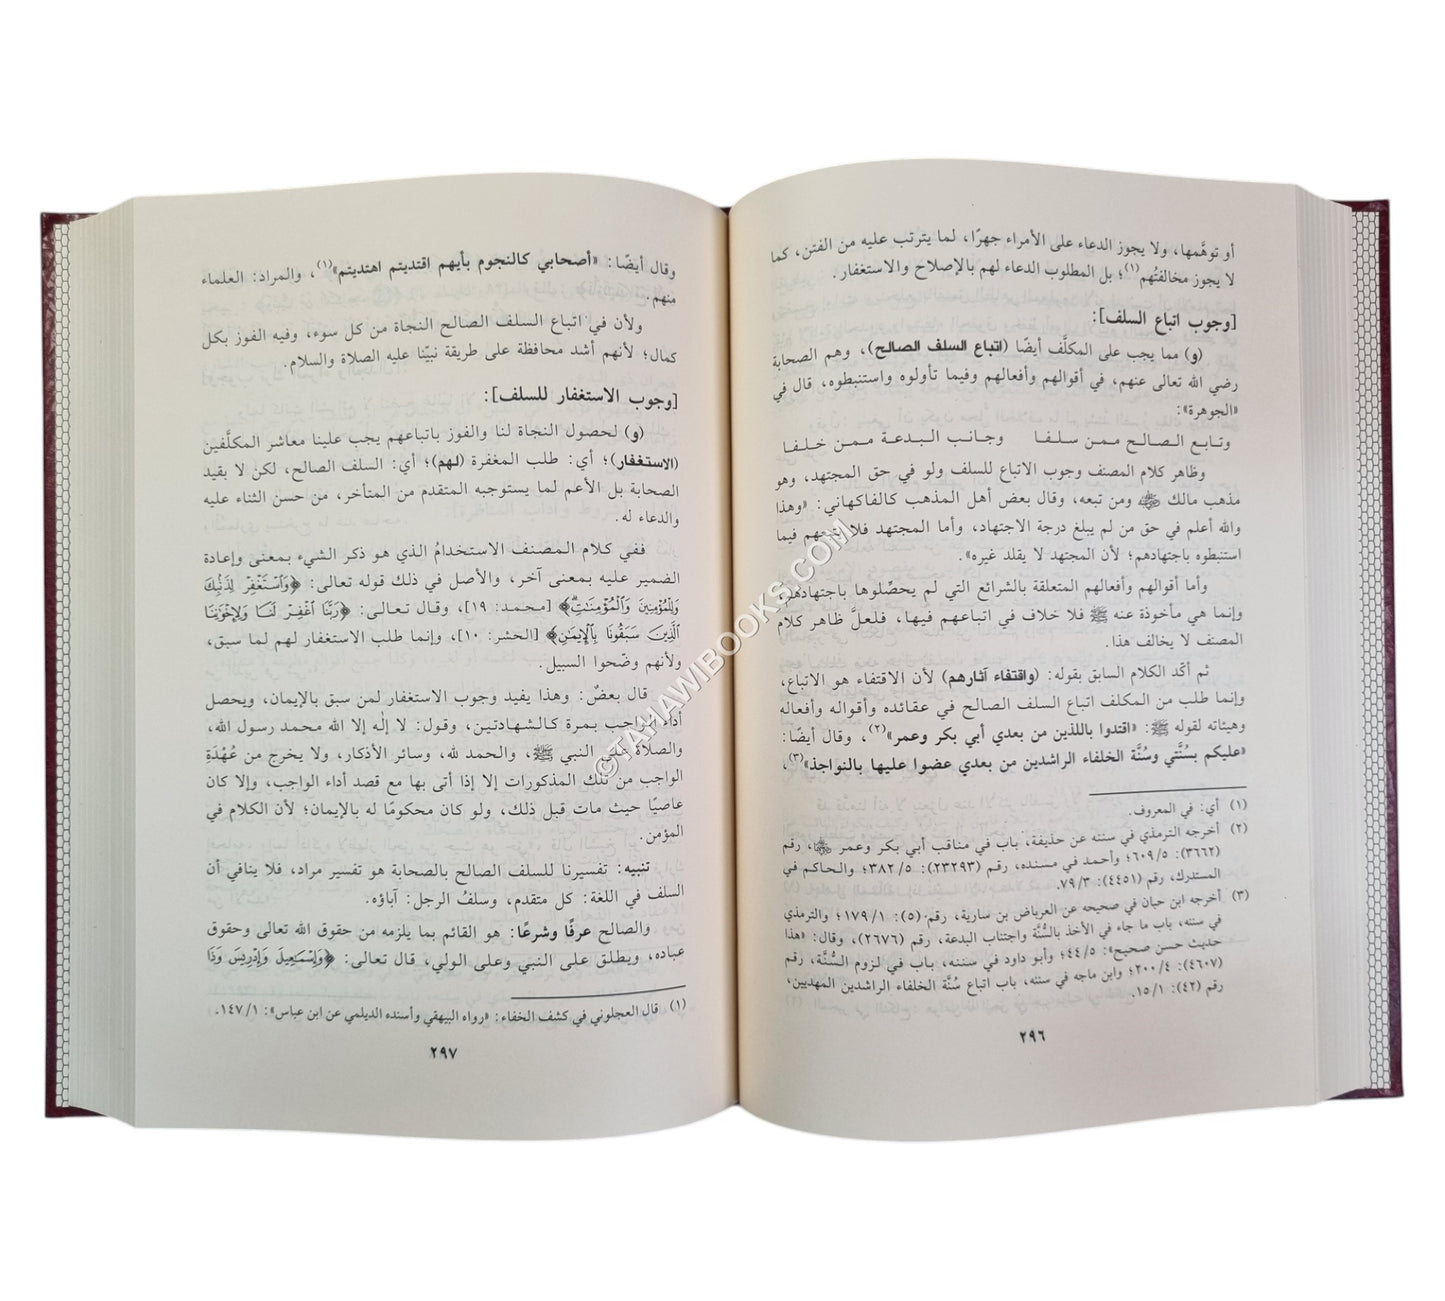 أو توهَّمها، ولا يجوز الدعاء على الأمراء جهرًا، لما يترتب عليه من الفتن، كما
لا يجوز مخالفتُهم(١)؛ بل المطلوب الدعاء لهم بالإصلاح والاستغفار.
[وجوب اتباع السلف]:
(و) مما يجب على المكلَّف أيضًا (اتباع السلف الصالح)، وهم الصحابة
رضي الله تعالى عنهم، في أقوالهم وأفعالهم وفيما تأولوه واستنبطوه، قال في
«الجوهرة»:
وتابع الصالح ممن سلفا وجانب البدعة ممن خلفا
وظاهر كلام المصنف وجوب الاتباع للسلف ولو في حق المجتهد، وهو
مذهب مالك ﷺ ومن تبعه، وقال بعض أهل المذهب كالفاكهاني: «وهذا
والله أعلم في حق من لم يبلغ درجة الاجتهاد، وأما المجتهد فلا يتبعهم فيما
استنبطوه باجتهادهم؛ لأن المجتهد لا يقلد غيره».
وأما أقوالهم وأفعالهم المتعلقة بالشرائع التي لم يحصِّلوها باجتهادهم،
وإنما هي مأخوذة عنه ﷺ فلا خلاف في اتباعهم فيها، فلعلَّ ظاهر كلام
المصنف لا يخالف هذا.
ثم أكّد الكلام السابق بقوله: (واقتفاء آثارهم) لأن الاقتفاء هو الاتباع،
وإنما طلب من المكلف اتباع السلف الصالح في عقائده وأقواله وأفعاله
وهيئاته لقوله ﷺ: «اقتدوا باللذين من بعدي أبي بكر وعمر»(٢)، وقال أيضًا:
«عليكم بسُنَّتي وسُنَّة الخلفاء الراشدين من بعدي عضوا عليها بالنواجذ»(٣)،
(١) أي: في المعروف.
(٢) أخرجه الترمذي في سننه عن حذيفة، باب في مناقب أبي بكر وعمر، رقم
(٣٦٦٢): ٦٠٩/٥؛ وأحمد في مسنده، رقم (٢٣٢٩٣): ٣٨٢/٥؛ والحاكم في
المستدرك، رقم (٤٤٥١): ٧٩/٣.
(٣) أخرجه ابن حبان في صحيحه عن العرباض بن سارية، رقم (٥): ١٧٩/١؛ والترمذي
في سننه، باب ما جاء في الأخذ بالسُّنَّة واجتناب البدعة، رقم (٢٦٧٦)، وقال: «هذا
حديث حسن صحيح»: ٤٤/٥؛ وأبو داود في سننه، باب في لزوم السُّنَّة، رقم
(٤٦٠٧): ٢٠٠/٤؛ وابن ماجه في سننه، باب اتباع سُنَّة الخلفاء الراشدين المهديين،
رقم (٤٢): ١٥/١.
٢٩٦
وقال أيضًا: «أصحابي كالنجوم بأيهم اقتديتم اهتديتم»(١)، والمراد: العلماء
منهم.
ولأن في اتباع السلف الصالح النجاة من كل سوء، وفيه الفوز بكل
كمال؛ لأنهم أشد محافظة على طريقة نبيّنا عليه الصلاة والسلام.
[وجوب الاستغفار للسلف]:
(و) لحصول النجاة لنا والفوز باتباعهم يجب علينا معاشر المكلَّفين
(الاستغفار)؛ أي: طلب المغفرة (لهم)؛ أي: السلف الصالح، لكن لا بقيد
الصحابة بل الأعم لما يستوجبه المتقدم من المتأخر، من حسن الثناء عليه
والدعاء له.
ففي كلام المصنف الاستخدامُ الذي هو ذكر الشيء بمعنى وإعادة
الضمير عليه بمعنى آخر، والأصل في ذلك قوله تعالى: ﴿وَٱسْتَغْفِرْ لِذَنۢبِكَ
وَلِلْمُؤْمِنِينَ وَٱلْمُؤْمِنَٰتِۗ﴾ [محمد: ١٩]، وقال تعالى: ﴿رَبَّنَا ٱغْفِرْ لَنَا وَلِإِخْوَٰنِنَا
ٱلَّذِينَ سَبَقُونَا بِٱلْإِيمَٰنِ﴾ [الحشر: ١٠]، وإنما طلب الاستغفار لهم لما سبق،
ولأنهم وضّحوا السبيل.
قال بعضٌ: وهذا يفيد وجوب الاستغفار لمن سبق بالإيمان، ويحصل
أداء الواجب بمرة كالشهادتين، وقول: لا إلٰه إلا الله محمد رسول الله،
والصلاة على النبي ﷺ، والحمد لله، وسائر الأذكار، ولا يخرج من عُهْدَةِ
الواجب من تلك المذكورات إلا إذا أتى بها مع قصد أداء الواجب، وإلا كان
عاصيًا حيث مات قبل ذلك، ولو كان محكومًا له بالإيمان؛ لأن الكلام في
المؤمن.
تنبيه: تفسيرنا للسلف الصالح بالصحابة هو تفسير مراد، فلا ينافي أن
السلف في اللغة: كل متقدم، وسلفُ الرجل: آباؤه.
والصالح عرفًا وشرعًا: هو القائم بما يلزمه من حقوق الله تعالى وحقوق
عباده، ويطلق على النبي وعلى الولي، قال تعالى: ﴿وَإِسْمَٰعِيلَ وَإِدْرِيسَ وَذَا
(١) قال العجلوني في كشف الخفاء: «رواه البيهقي وأسنده الديلمي عن ابن عباس»: ١٤٧/١.
٢٩٧
©TAHAWIBOOKS.COM